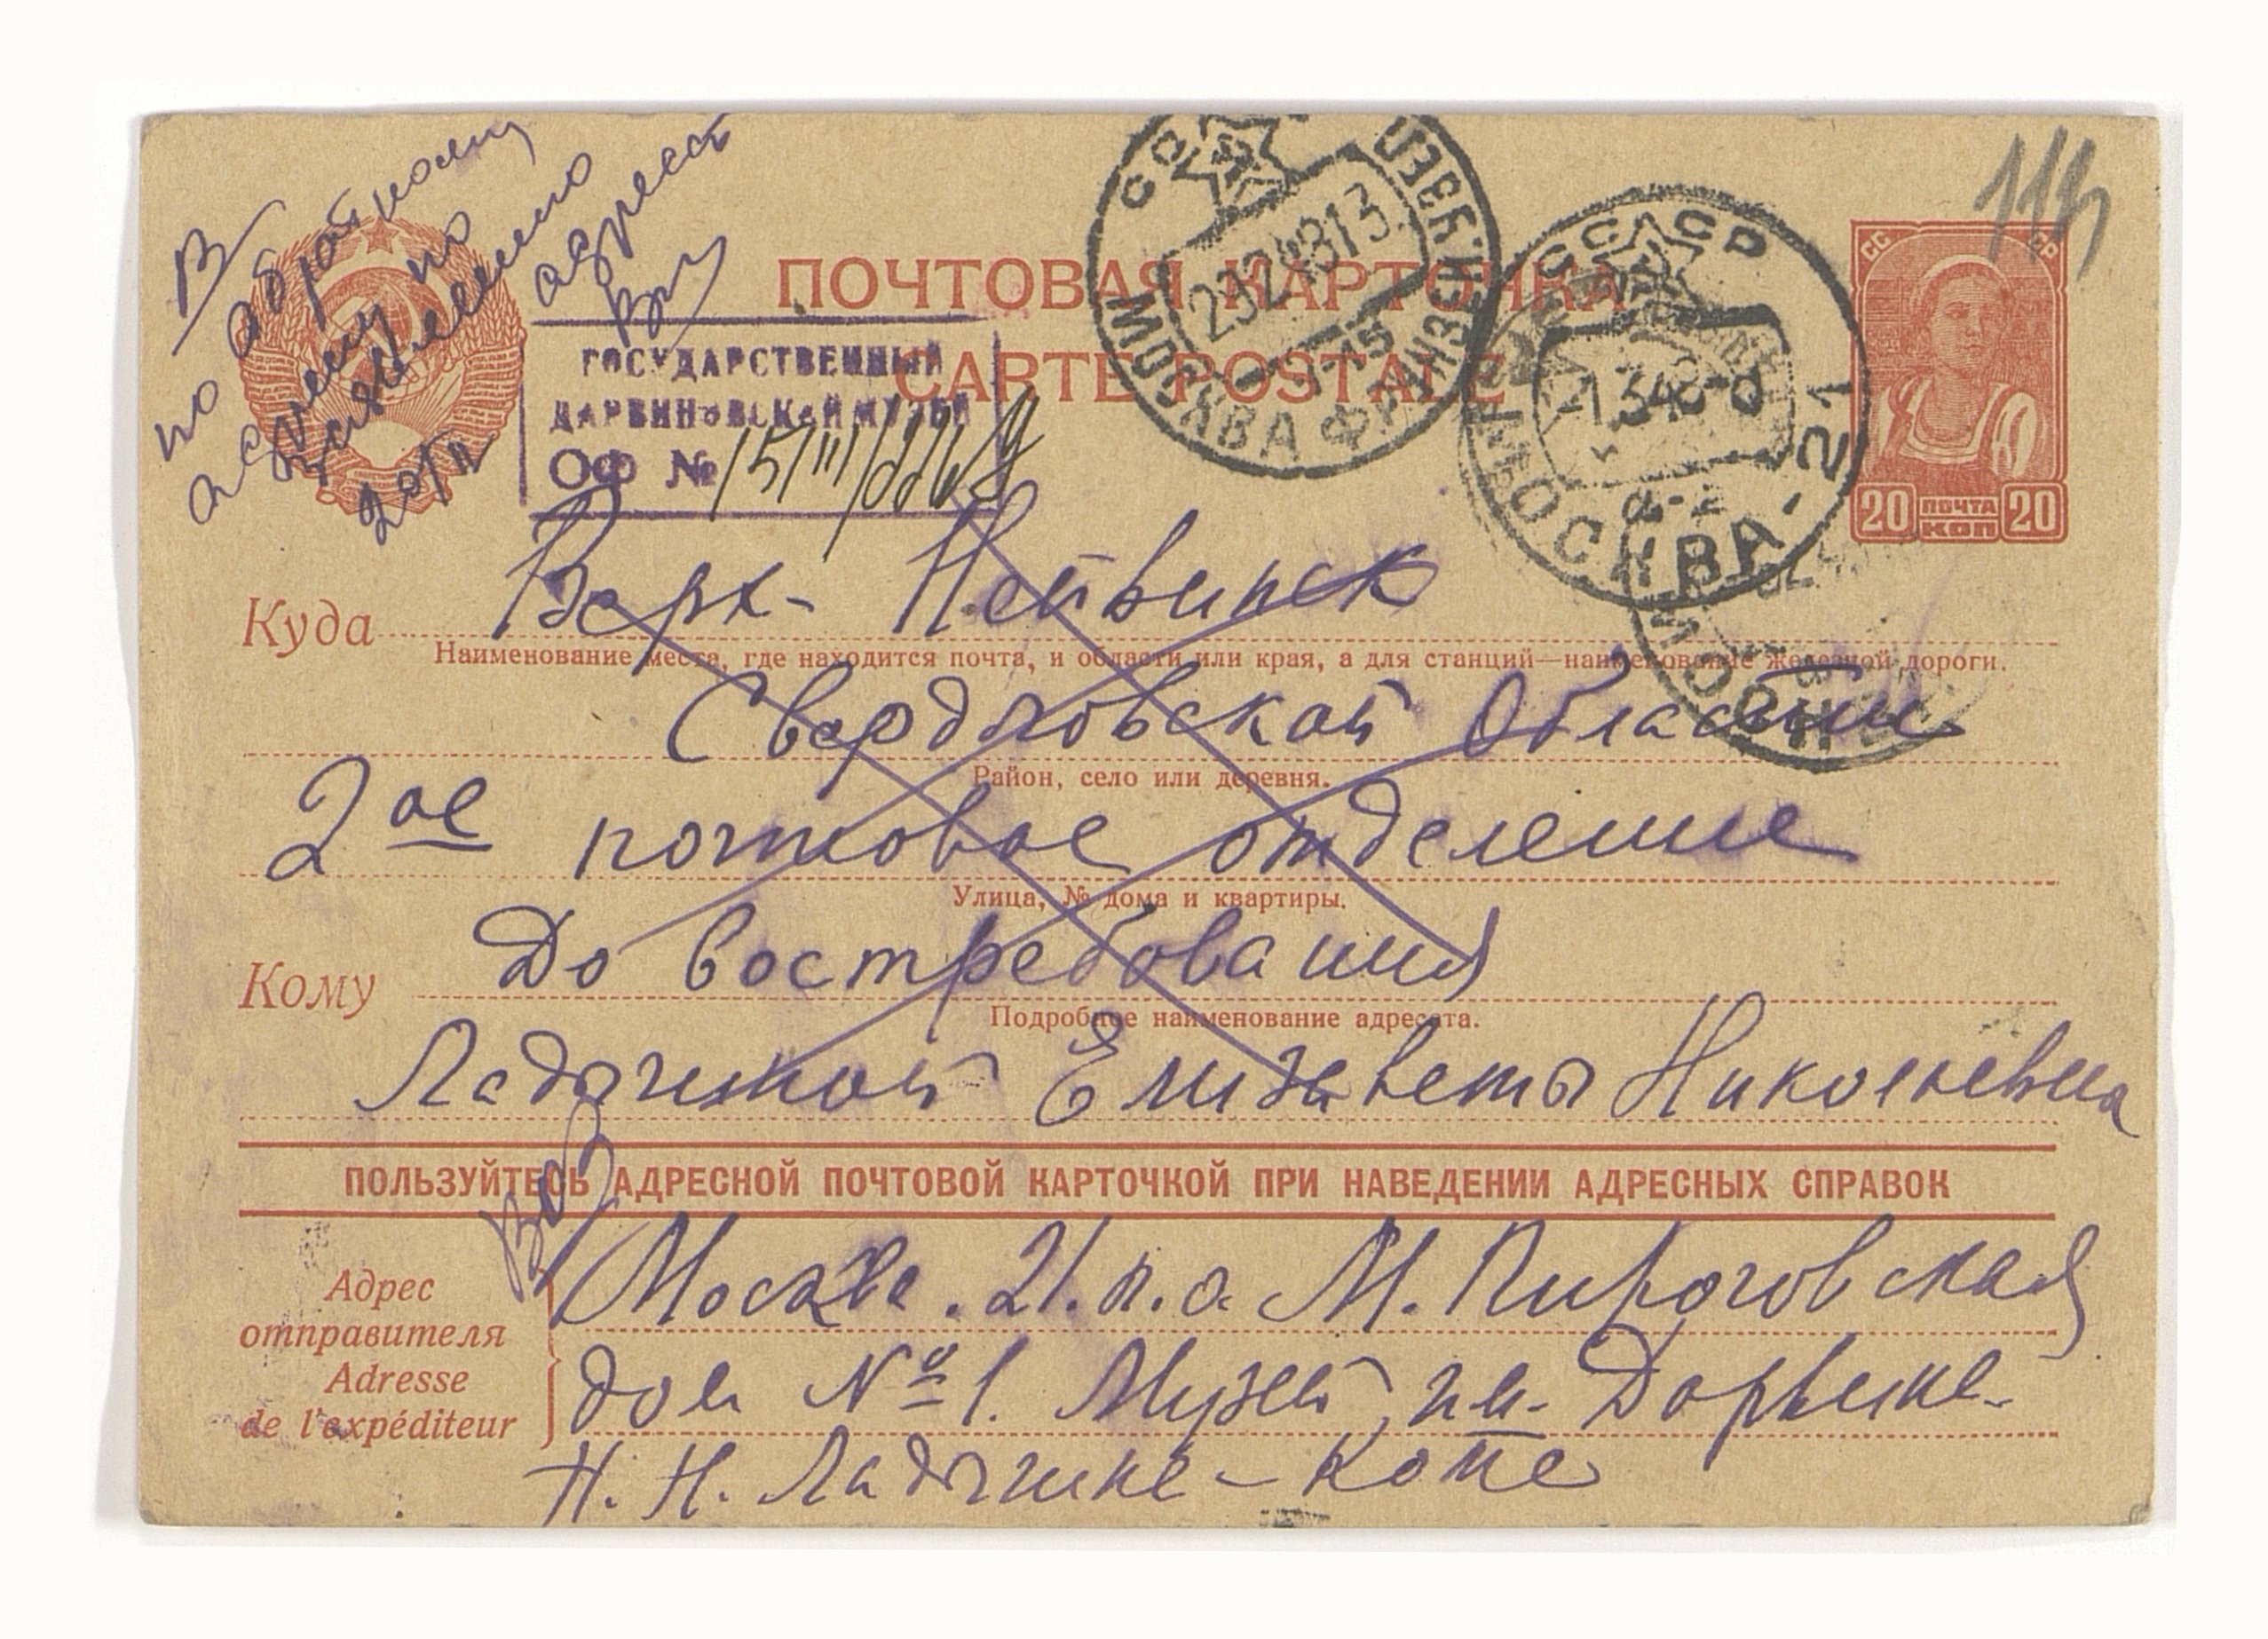 В
по обратному
адресу по
заявлению
адресат
ПОЧТОВАЯ КАРТОЧКА
CARTE POSTALE
ГОСУДАРСТВЕННЫЙ
ДАРВИНОВСКИЙ МУЗЕЙ
ОФ №
СССР
МОСКВА ФРУНЗЕНСК
СССР
МОСКВА-21
СС СР
20 ПОЧТА 20
КОП
Куда Верх- Нейвинск
Наименование места, где находится почта, и области или края, а для станций—наименование железной дороги.
Свердловской Области
Район, село или деревня.
2ое почтовое отделение
Улица, № дома и квартиры.
Кому До востребования
Подробное наименование адресата.
Ладыгиной Елизаветы Николаевна
ПОЛЬЗУЙТЕСЬ АДРЕСНОЙ ПОЧТОВОЙ КАРТОЧКОЙ ПРИ НАВЕДЕНИИ АДРЕСНЫХ СПРАВОК
Адрес отправителя
Adresse de l'expéditeur
Москва. 21. п.о. М. Пироговская
дом № 1. Музей им. Дарвина.
Н. Н. Ладыгина-Котс